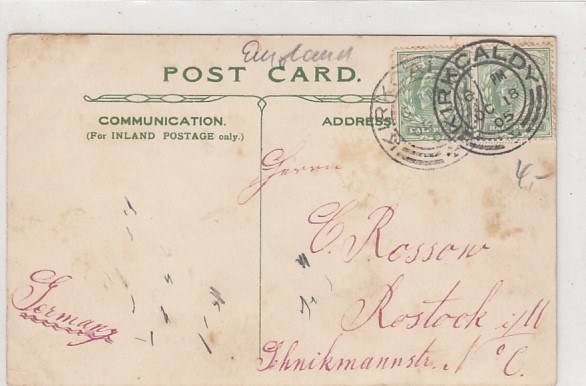 England
POST CARD.
COMMUNICATION.
(For INLAND POSTAGE only.)
ADDRESS
KIRKCALDY
8 PM
OC 18
05
KIRK
4,-
Herrn
C. Rossow
Rostock i/M
Schnikmannstr. No 6.
Germany